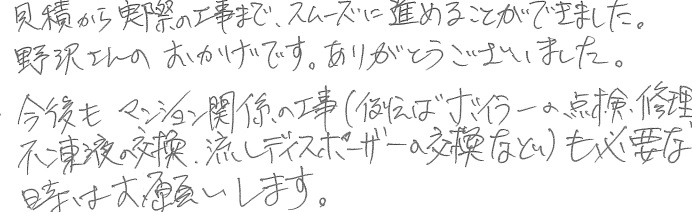 見積から実際の工事まで、スムーズに進めることができました。
野沢さんのおかげです。ありがとうございました。
今後もマンション関係の工事(例えばボイラーの点検、修理
不凍液の交換、流しディスポーザーの交換など)も必要な
時はお願いします。